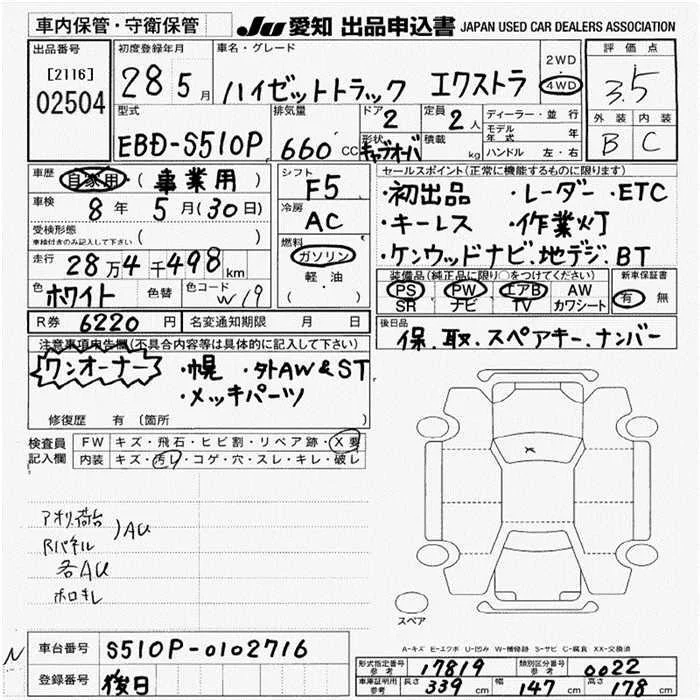 車内保管・守衛保管
JU 愛知 出品申込書 JAPAN USED CAR DEALERS ASSOCIATION
出品番号
[2116]
02504
初度登録年月
28 5月
車名・グレード
ハイゼットトラック エクストラ
2WD
4WD
評価点
3.5
外装 内装
B C
型式
EBD-S510P
排気量
660 CC
ドア
2
形状
キャブオーバ
定員
2人
積載
kg
ディーラー・並行
モデル年式 年
ハンドル 左・右
車歴 自家用 ( 事業用 )
車検 8年 5月(30日)
受検形態
車検付きのみ記入して下さい ( )
走行 28万4千498km
色 ホワイト 色替 色コード W19
シフト
F5
冷房
AC
燃料
ガソリン
軽・油
( )
R券 6220円 名変通知期限 月 日
セールスポイント(正常に機能するものに限ります)
・初出品 ・レーダー・ETC
・キーレス ・作業灯
・ケンウッドナビ.地デジ.BT
装備品(純正品に限り○をつけてください)
PS PW エアB AW
SR ナビ TV カワシート
新車保証書
有 無
後日品
保.取.スペアキー.ナンバー
注意事項申告欄(不具合内容等は具体的に記入して下さい)
ワンオーナー ・幌 ・外AW&ST
・メッキパーツ
修復歴 有 (箇所 )
検査員記入欄
FW キズ・飛石・ヒビ割・リペア跡・X要
内装 キズ・汚レ・コゲ・穴・スレ・キレ・破レ
アオリ荷台 )AU
Rパネル
各AU
ホロキレ
スペア
A-キズ E-エクボ U-凹み W-補修跡 S-サビ C-腐食 XX-交換済
N
車台番号 S510P-0102716
登録番号 後日
形式指定番号 参考 17819 類別区分番号 参考 0022
車庫証明用 参考 長さ 339cm 幅 147cm 高さ 178cm